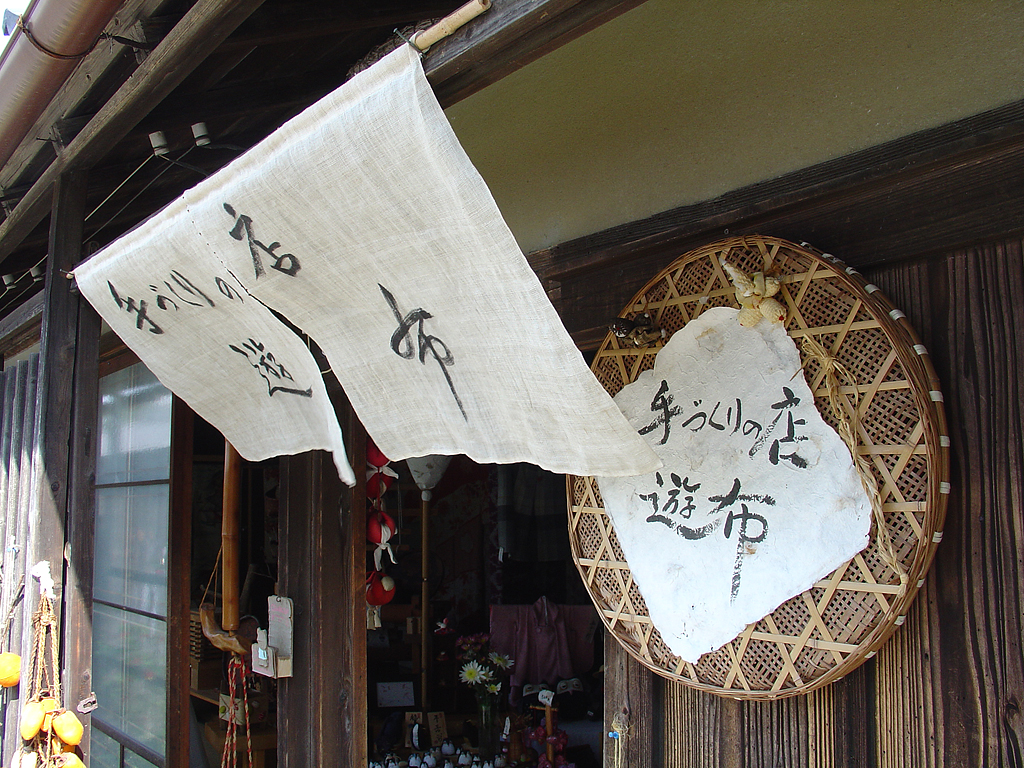 手づくりの店
遊布
手づくりの店
遊布